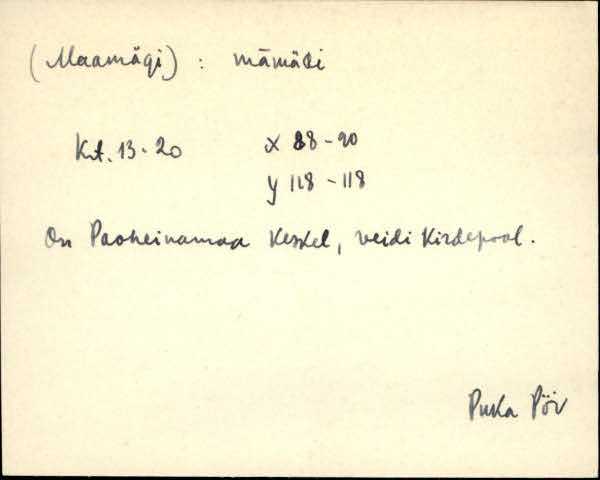 (Maamägi) : māmäGi
Krt. 13-20 X 88-90
y 118-118
On Paoheinamaa keskel, veidi kirdepool.
Puka Pör